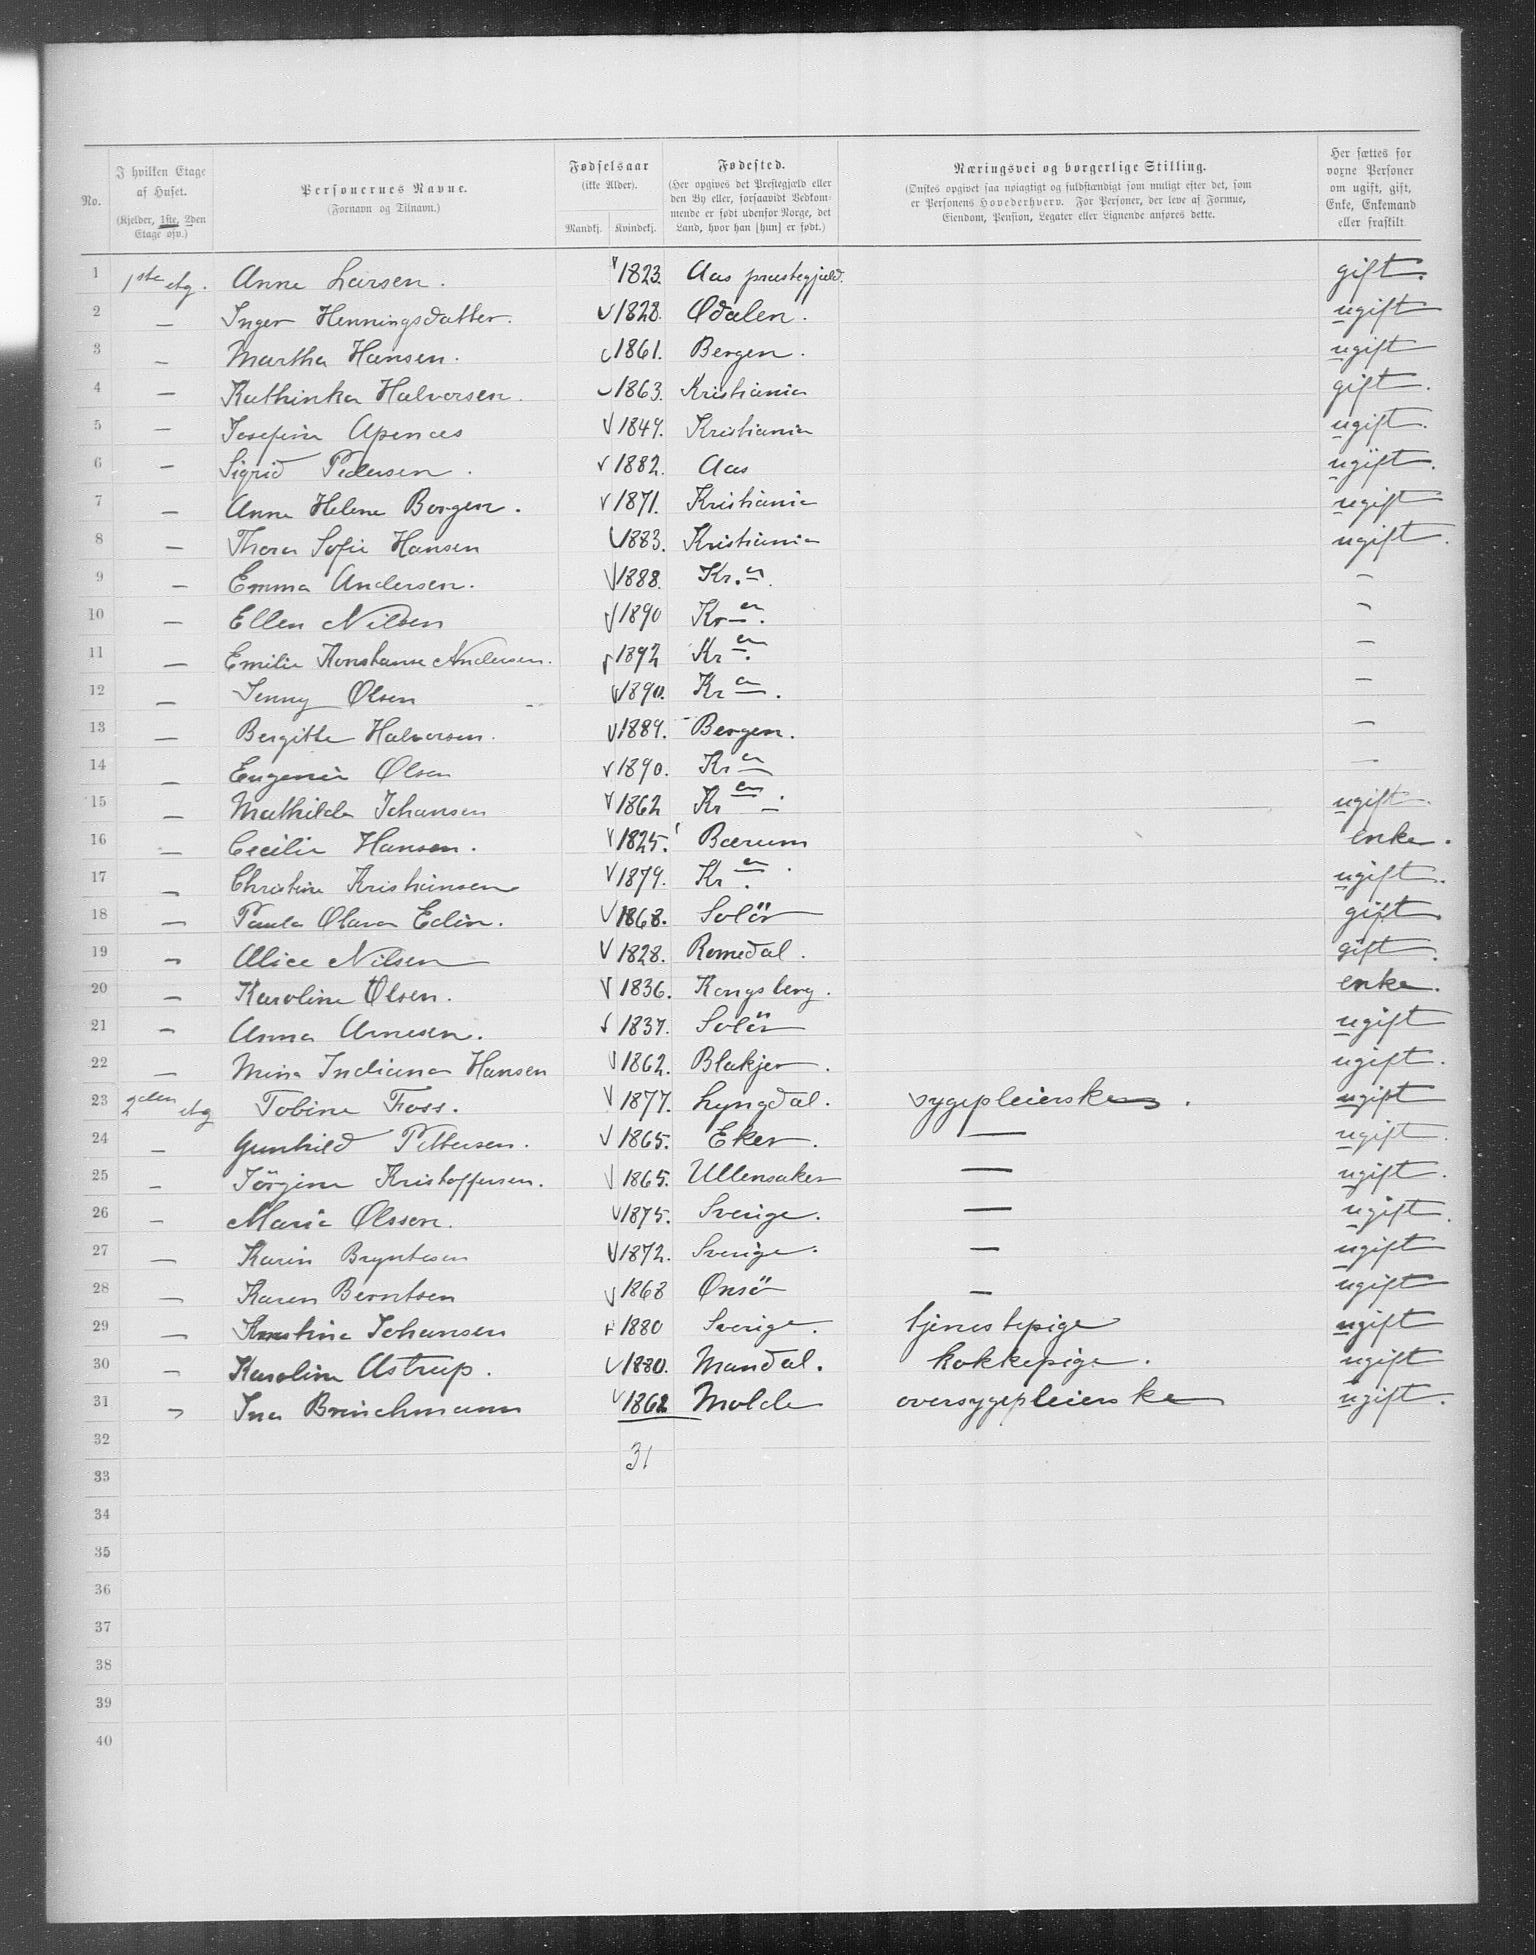 No.
I hvilken Etage af Huset.
(Kjelder, 1ste, 2den Etage osv.)
Personernes Navne.
(Fornavn og Tilnavn.)
Fødselsaar
(ikke Alder).
Mandkj. Kvindekj.
Fødested.
(Her opgives det Prestegjæld eller
den By eller, forsaavidt Vedkom-
mende er født udenfor Norge, det
Land, hvor han [hun] er født.)
Næringsvei og borgerlige Stilling.
(Ønskes opgivet saa nøiagtigt og fuldstændigt som muligt efter det, som
er Personens Hovederhverv. For Personer, der leve af Formue,
Eiendom, Pension, Legater eller Lignende anføres dette.
Her sættes for
voxne Personer
om ugift, gift,
Enke, Enkemand
eller fraskilt.
1 1ste etg. Anne Larsen. 1823. Aas præstegjæld. gift.
2 — Inger Henningsdatter. 1828. Ødalen. ugift
3 — Martha Hansen. 1861. Bergen. ugift
4 — Kathinka Halvorsen. 1863. Kristiania gift.
5 — Josefine Apenæs 1849. Kristiania ugift.
6 — Sigrid Pedersen. 1882. Aas ugift.
7 — Anne Helene Borgen. 1871. Kristiania ugift
8 — Thora Sofie Hansen 1883. Kristiania ugift.
9 — Emma Andersen. 1888. Kr.a. —
10 — Ellen Nilsen 1890 Kr a. —
11 — Emilie Konstanse Andersen. 1892 Kr a. —
12 — Jenny Olsen 1890. Kr a. —
13 — Bergitte Halvorsen. 1889. Bergen. —
14 — Eugenie Olsen 1890. Kr a —
15 — Mathilde Johansen 1862 Kr a. ugift.
16 — Cecilie Hansen. 1825. Bærum enke.
17 — Christine Kristiansen 1879. Kr a. ugift.
18 — Paula Olava Edin. 1868. Solör gift.
19 — Alice Nilsen 1828. Romedal. gift.
20 — Karoline Olsen. 1836. Kongsberg. enke.
21 — Anna Arnesen. 1837. Solör ugift
22 — Mina Indiana Hansen 1862. Blakjer. ugift.
23 2den etg Tobine Foss. 1877. Lyngdal. sygepleierske. ugift
24 — Gunhild Pettersen. 1865. Eker. — ugift.
25 — Jörgine Kristoffersen. 1865. Ullensaker — ugift.
26 — Maria Olsson. 1875. Sverige. — ugift.
27 — Karin Bryntesen 1872. Sverige. — ugift
28 — Karen Berntsen 1868 Onsö — ugift
29 — Kristine Johansen 1880 Sverige. tjenestepige ugift
30 — Karoline Astrup. 1880. Mandal. kokkepige. ugift
31 — Ina Brinchmann 1862 Molde oversygepleierske ugift.
32 31
33
34
35
36
37
38
39
40